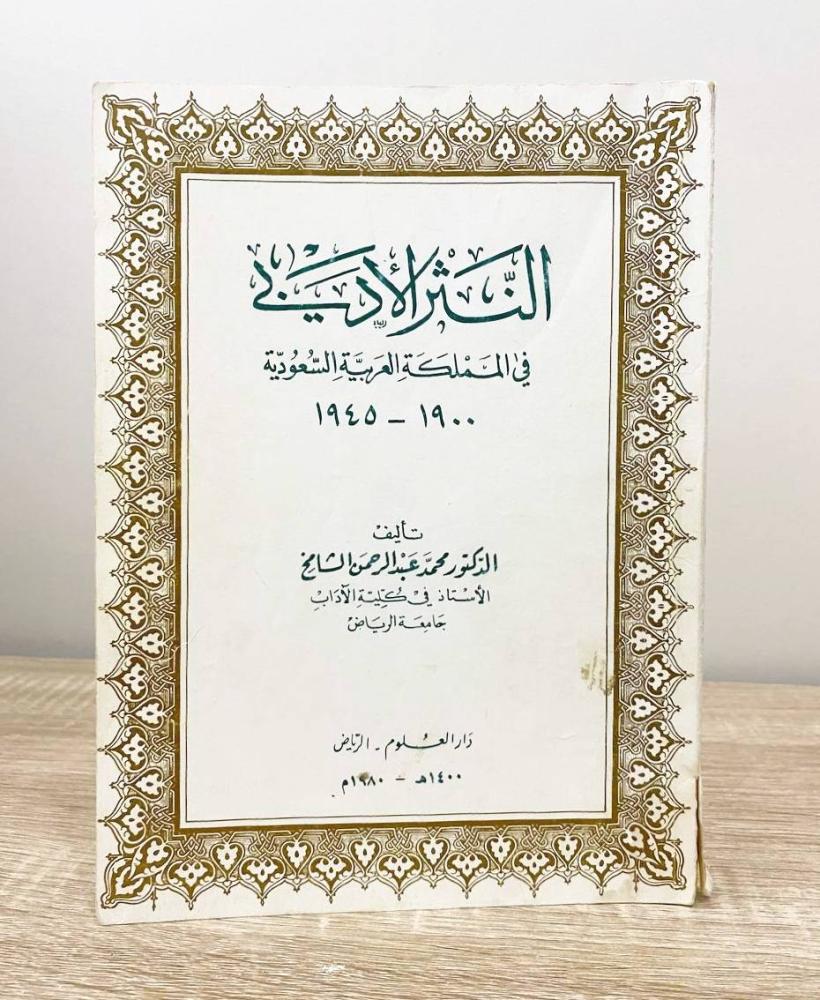 النَّثر الأدَبي
في المَمْلكَة العَربيَّة السُّعُوديّة
١٩٠٠ - ١٩٤٥
تأليف
الدكتور محمَّد عَبْد الرحمن الشامخ
الأستاذ في كليّة الآداب
جامعة الرياض
دار العُلوم - الرياض
١٤٠٠هـ - ١٩٨٠م